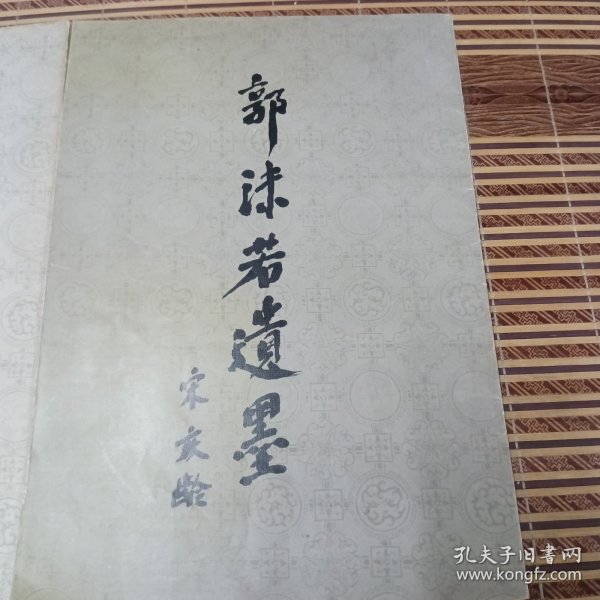 郭沫若遺墨
宋慶齡
孔夫子旧書网
www.kongfz.com